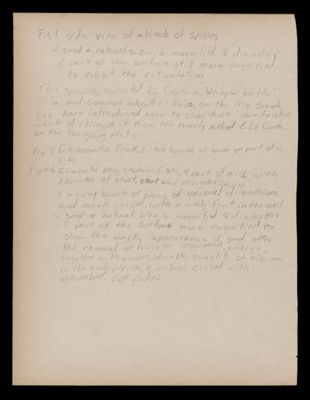 Fig 1, side view of a bunch of spines
d, seed a natural size, b magnified 8 diameters
c, part of the surface still more magnified
to exhibit the reticulation
This species, collected by Captain Whipple on the
Gila, and common about El Paso, on the Rio Grande
has been introduced here to show those characteristics
which distinguish it from the nearly allied E. Le Conte
on the foregoing plate
Fig. 1, Echinocactus three bunches of spines on part of a
rib
Fig Echinocactus polycephalus part of a rib with
3 bunches of short, stout and straight spines
young bunch of of unusual dimensions
and much curved, with a wooly fruit in the
6, seed, a natural size, b, magnified 8 diameters
c, part of the surface more magnified to
show the warty appearance d, seed after
the removal of the outer embryo
with a considerable quantity of albumen
in the endopleura, e, embryo curved with
accumbent cotyledons.